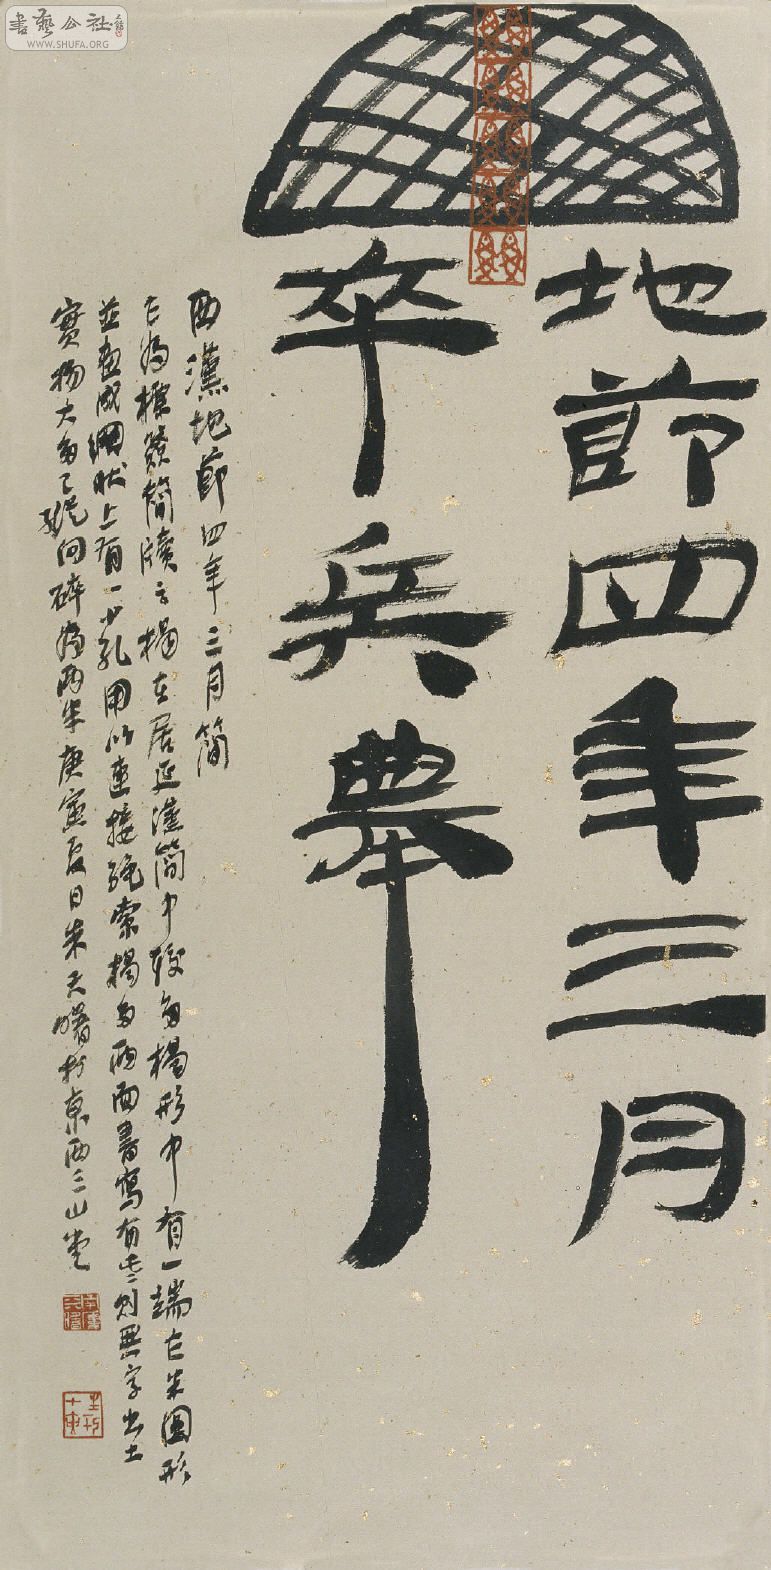 書藝公社
WWW.SHUFA.ORG
地節四年三月
卒兵舉
西漢地節四年三月簡
亡為標簽簡牘之楬在居延漢簡中較多楬形中有一端亡半圓形
並畫成網狀上有一小孔用以連接繩索楬多兩面書寫有些則無字出土
實物大多已縱向碎為兩半庚寅夏日朱天曙於東西三山堂